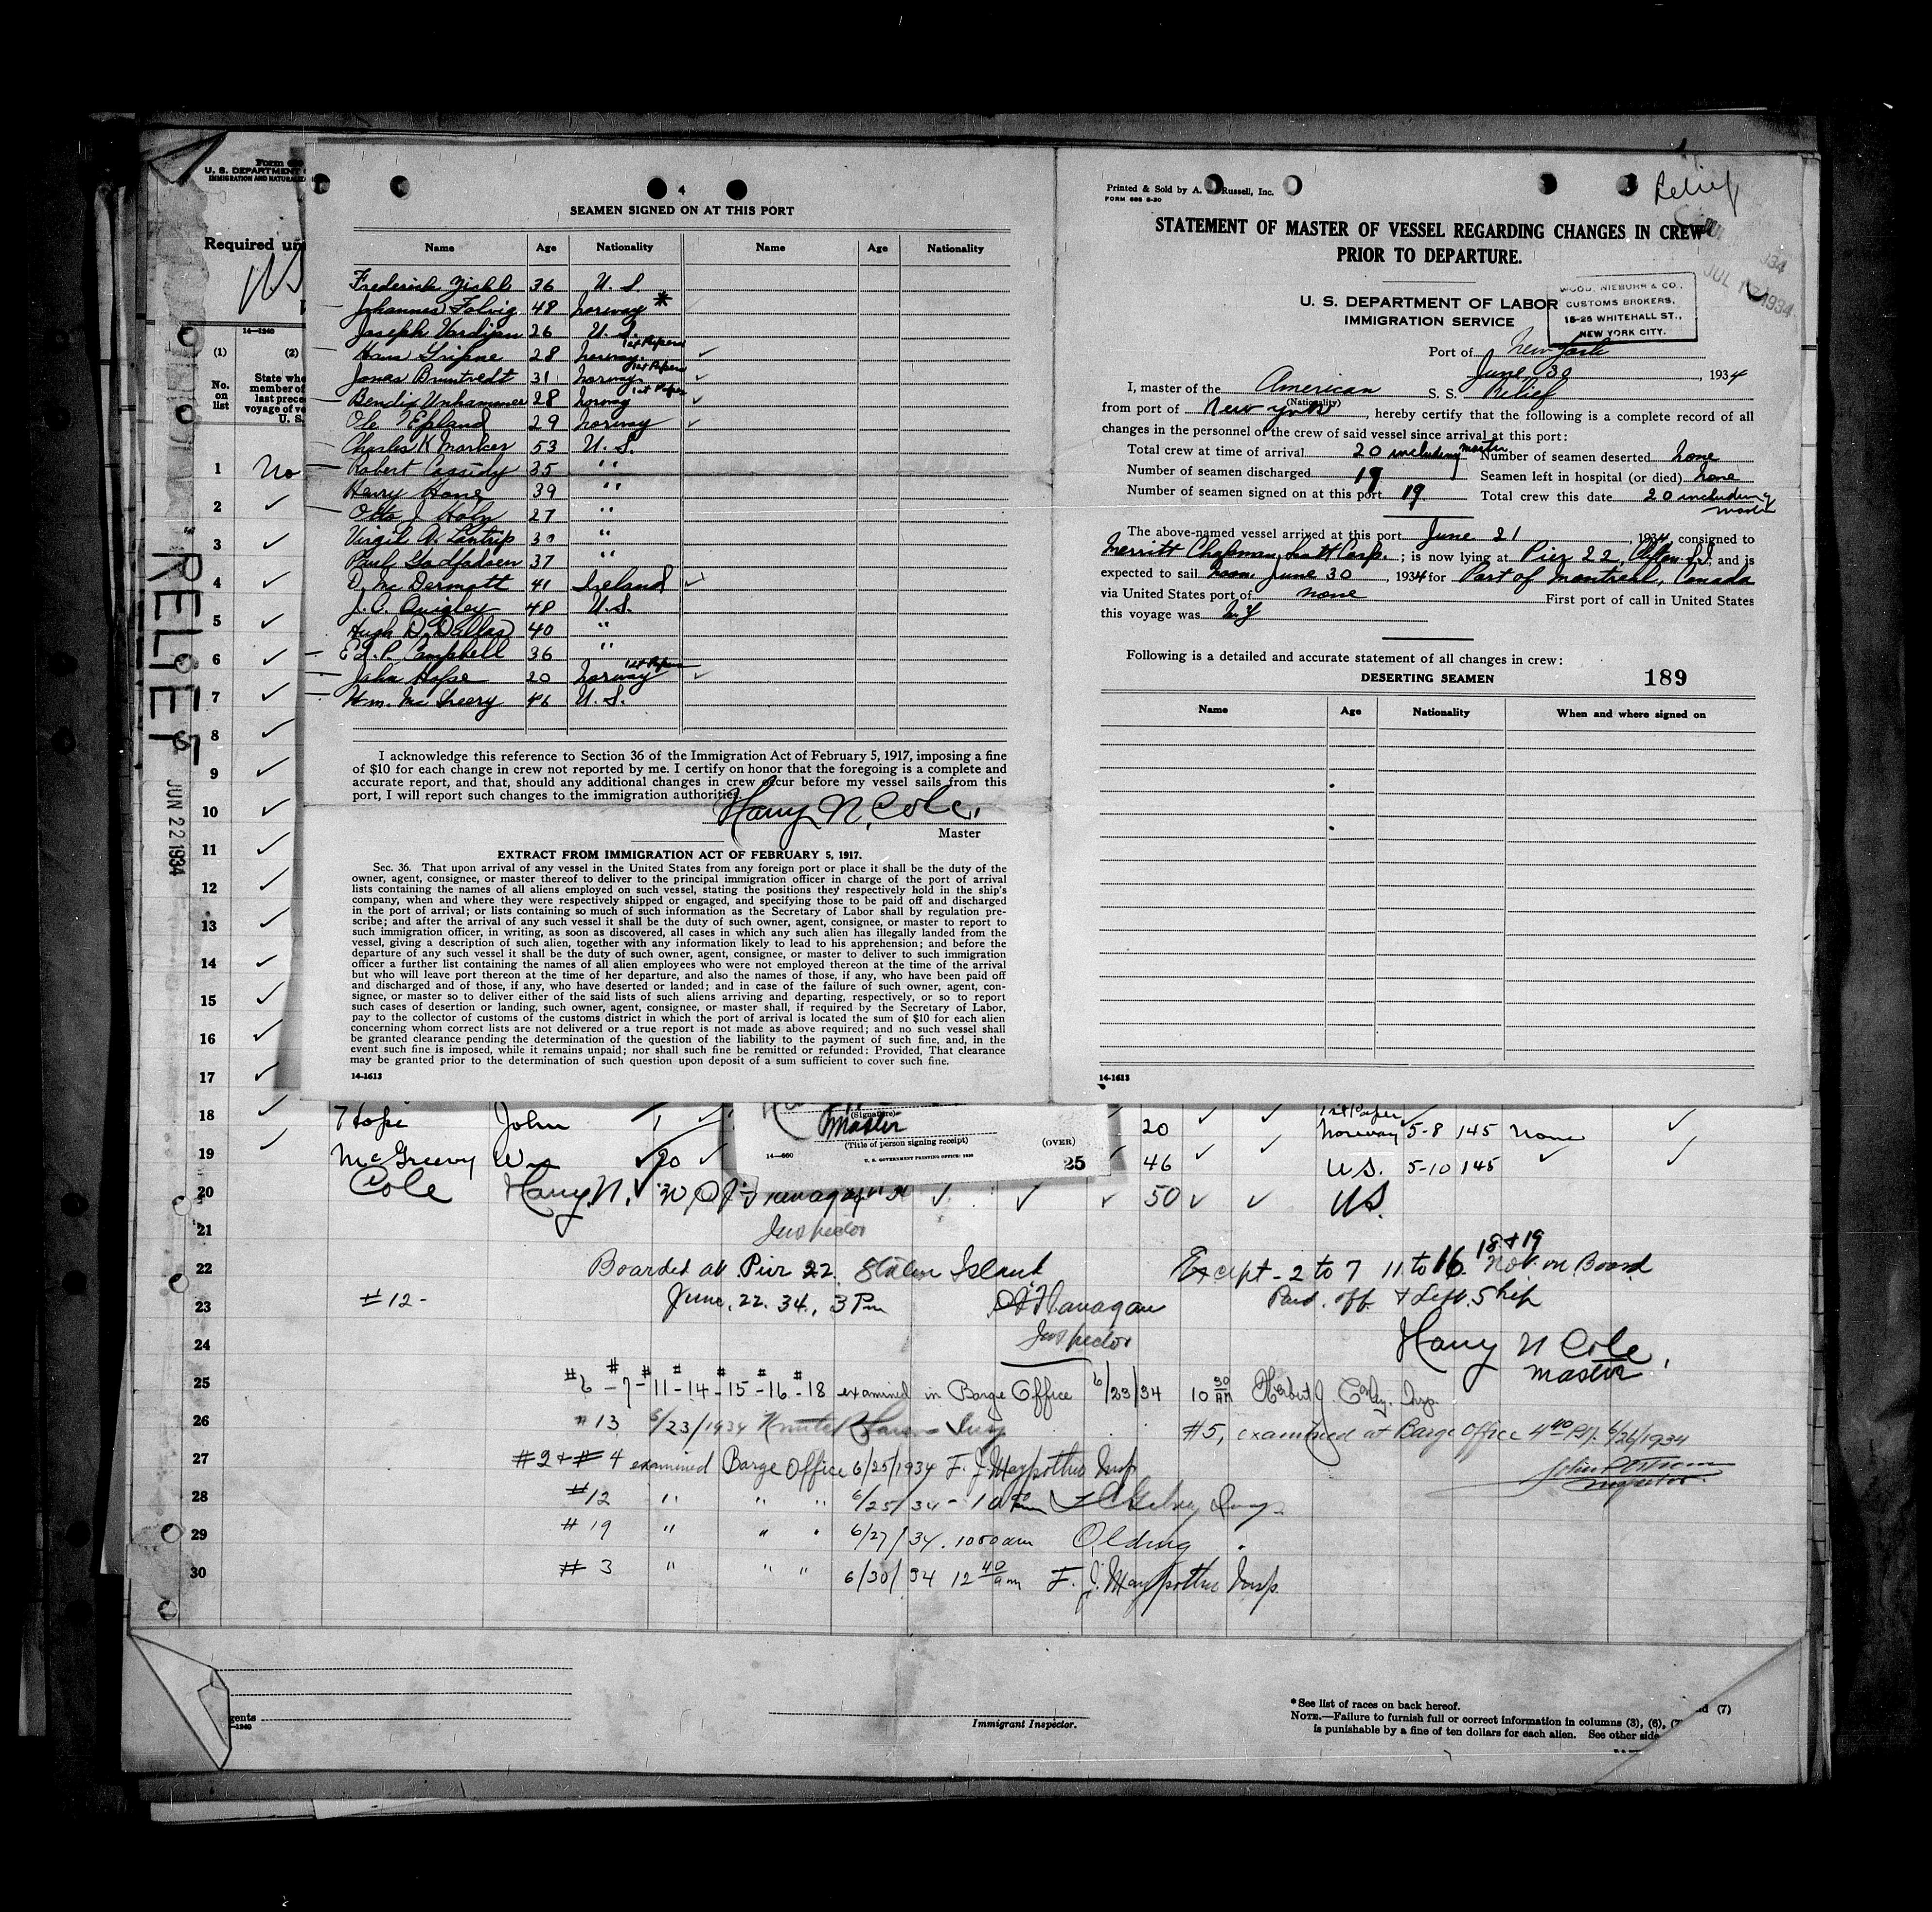 Form
U. S. DEPARTMENT
IMMIGRATION AND NATURALIZ
Required un
14—1240
(1)
(2)
No. on list
State whe
member of
last prece
voyage of ve
U. S.
RELIEF
JUN 22 1934
1 No
2
3
4
5
6
7
8
9
10
11
12
13
14
15
16
17
4
SEAMEN SIGNED ON AT THIS PORT
Name Age Nationality Name Age Nationality
Frederick 36 U. S
Johannes Folvig 48 Norway *
Joseph Vardijan 26 U. S.
Hans Gripne 28 Norway 1st Papers
Jonas Bruntvedt 31 Norway 1st Papers
Bendix Unhammer 28 Norway 1st Papers
Ole Norway 29
Charles K Marker 53 U. S.
Robert Cassidy 35 "
Henry Hane 39 "
Otto J Holm 27 "
Virgil A. Lantrip 30 "
Paul 37 "
D. McDermott 41 Ireland
J. C. Quigley 48 U. S.
Hugh D. Dallas 40 "
Ed. P. Campbell 36 "
John Hope 20 Norway 1st Papers
Wm. McGreery 46 U. S.
I acknowledge this reference to Section 36 of the Immigration Act of February 5, 1917, imposing a fine
of $10 for each change in crew not reported by me. I certify on honor that the foregoing is a complete and
accurate report, and that, should any additional changes in crew occur before my vessel sails from this
port, I will report such changes to the immigration authorities.
Harry N. Cole,
Master
EXTRACT FROM IMMIGRATION ACT OF FEBRUARY 5, 1917.
Sec. 36. That upon arrival of any vessel in the United States from any foreign port or place it shall be the duty of the
owner, agent, consignee, or master thereof to deliver to the principal immigration officer in charge of the port of arrival
lists containing the names of all aliens employed on such vessel, stating the positions they respectively hold in the ship's
company, when and where they were respectively shipped or engaged, and specifying those to be paid off and discharged
in the port of arrival; or lists containing so much of such information as the Secretary of Labor shall by regulation pre-
scribe; and after the arrival of any such vessel it shall be the duty of such owner, agent, consignee, or master to report to
such immigration officer, in writing, as soon as discovered, all cases in which any such alien has illegally landed from the
vessel, giving a description of such alien, together with any information likely to lead to his apprehension; and before the
departure of any such vessel it shall be the duty of such owner, agent, consignee, or master to deliver to such immigration
officer a further list containing the names of all alien employees who were not employed thereon at the time of the arrival
but who will leave port thereon at the time of her departure, and also the names of those, if any, who have been paid off
and discharged and of those, if any, who have deserted or landed; and in case of the failure of such owner, agent, con-
signee, or master so to deliver either of the said lists of such aliens arriving and departing, respectively, or so to report
such cases of desertion or landing, such owner, agent, consignee, or master shall, if required by the Secretary of Labor,
pay to the collector of customs of the customs district in which the port of arrival is located the sum of $10 for each alien
concerning whom correct lists are not delivered or a true report is not made as above required; and no such vessel shall
be granted clearance pending the determination of the question of the liability to the payment of such fine, and, in the
event such fine is imposed, while it remains unpaid; nor shall such fine be remitted or refunded: Provided, That clearance
may be granted prior to the determination of such question upon deposit of a sum sufficient to cover such fine.
14-1613
Printed & Sold by A. Russell, Inc.
FORM 689 8-30
Relief
STATEMENT OF MASTER OF VESSEL REGARDING CHANGES IN CREW
PRIOR TO DEPARTURE.
JUL 1934
U. S. DEPARTMENT OF LABOR
IMMIGRATION SERVICE
WOOD, NIEBUHR & CO.,
CUSTOMS BROKERS,
15-25 WHITEHALL ST.,
NEW YORK CITY.
Port of New York
June 30, 1934
I, master of the American S. S. Relief
(Nationality)
from port of New York, hereby certify that the following is a complete record of all
changes in the personnel of the crew of said vessel since arrival at this port:
Total crew at time of arrival 20 including master Number of seamen deserted none
Number of seamen discharged 19 Seamen left in hospital (or died) none
Number of seamen signed on at this port 19 Total crew this date 20 including master
The above-named vessel arrived at this port June 21, 1934, consigned to
Merritt Chapman Scott Corp.; is now lying at Pier 22, Clifton S.I., and is
expected to sail Noon June 30, 1934 for Port of Montreal, Canada
via United States port of none First port of call in United States
this voyage was N.Y.
Following is a detailed and accurate statement of all changes in crew:
DESERTING SEAMEN 189
Name Age Nationality When and where signed on
14-1613
18 Hope John 20 1st Paper Norway 5-8 145 None
(Signature)
Master
(Title of person signing receipt)
(OVER)
14—660
U. S. GOVERNMENT PRINTING OFFICE: 1930
25
19 McGreevy Wm 46 U.S. 5-10 145
20 Cole Harry N. 50 U.S.
21 Inspector
22 Boarded at Pier 22. Staten Island Except - 2 to 7 11 to 16 18 & 19 Not on Board
23 #12 - June. 22. 34, 3 Pm Flanagan Paid. off & Left. Ship
24 Inspector Harry N Cole,
Master
25 #6 - #7 - #11 - #14 - #15 - #16 - #18 examined in Barge Office 6/23/34 10 30 AM Herbert J. Insp.
26 #13 6/23/1934 Insp #5, examined at Barge Office 4 40 PM 6/26/1934
27 #2 & #4 examined Barge Office 6/25/1934 F. J. Maypother Insp
Inspector
28 #12 " " " 6/25/34 - 10 Insp.
29 #19 " " " 6/27/34. 10 00 am Olding "
30 #3 " " " 6/30/34 12 40 am F. J. Maypother Insp.
gents
—1240
Immigrant Inspector.
*See list of races on back hereof.
NOTE.—Failure to furnish full or correct information in columns (3), (6), (7) nd (7)
is punishable by a fine of ten dollars for each alien. See other side